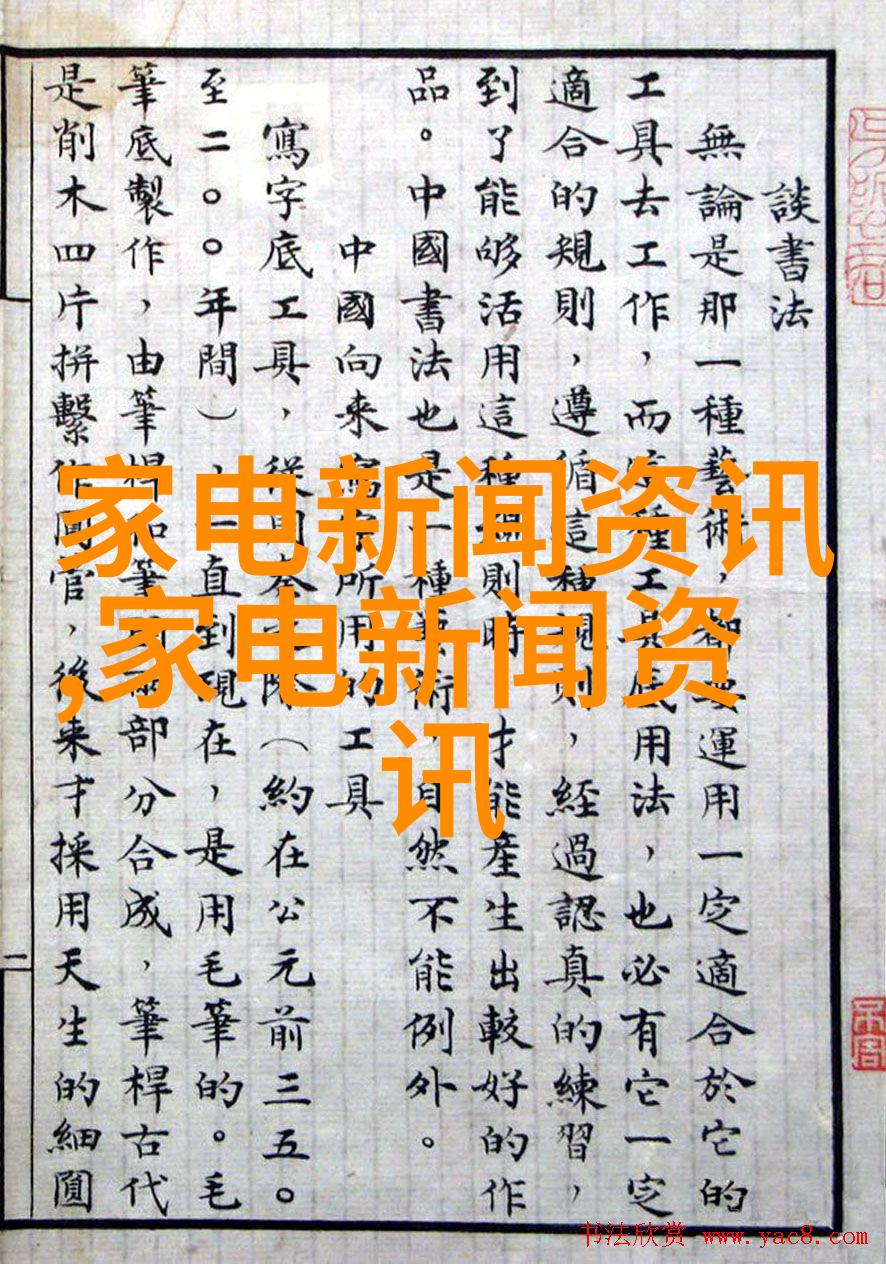 談書法
無論是那一種藝術，都要運用一定適合於它的
工具去工作，而這種工具底用法，也必有它一定
適合的規則，遵循這種規則，經過認真的練習，
到了能够活用這種規則時，才能產生出較好的作
品。中國書法也是一種藝術，自然不能例外。
中國向来寫字所用的工具
寫字底工具，從周（約在公元前三五〇
至二〇〇年間），一直到現在，是用毛筆的。毛
筆底製作，由筆桿和筆部分合成，筆桿古代
是削木四片拼繫作圓管，後来才採用天生的細圓
二
家电新闻资讯
,家电新闻资
讯
书法欣赏 www.yac8.com